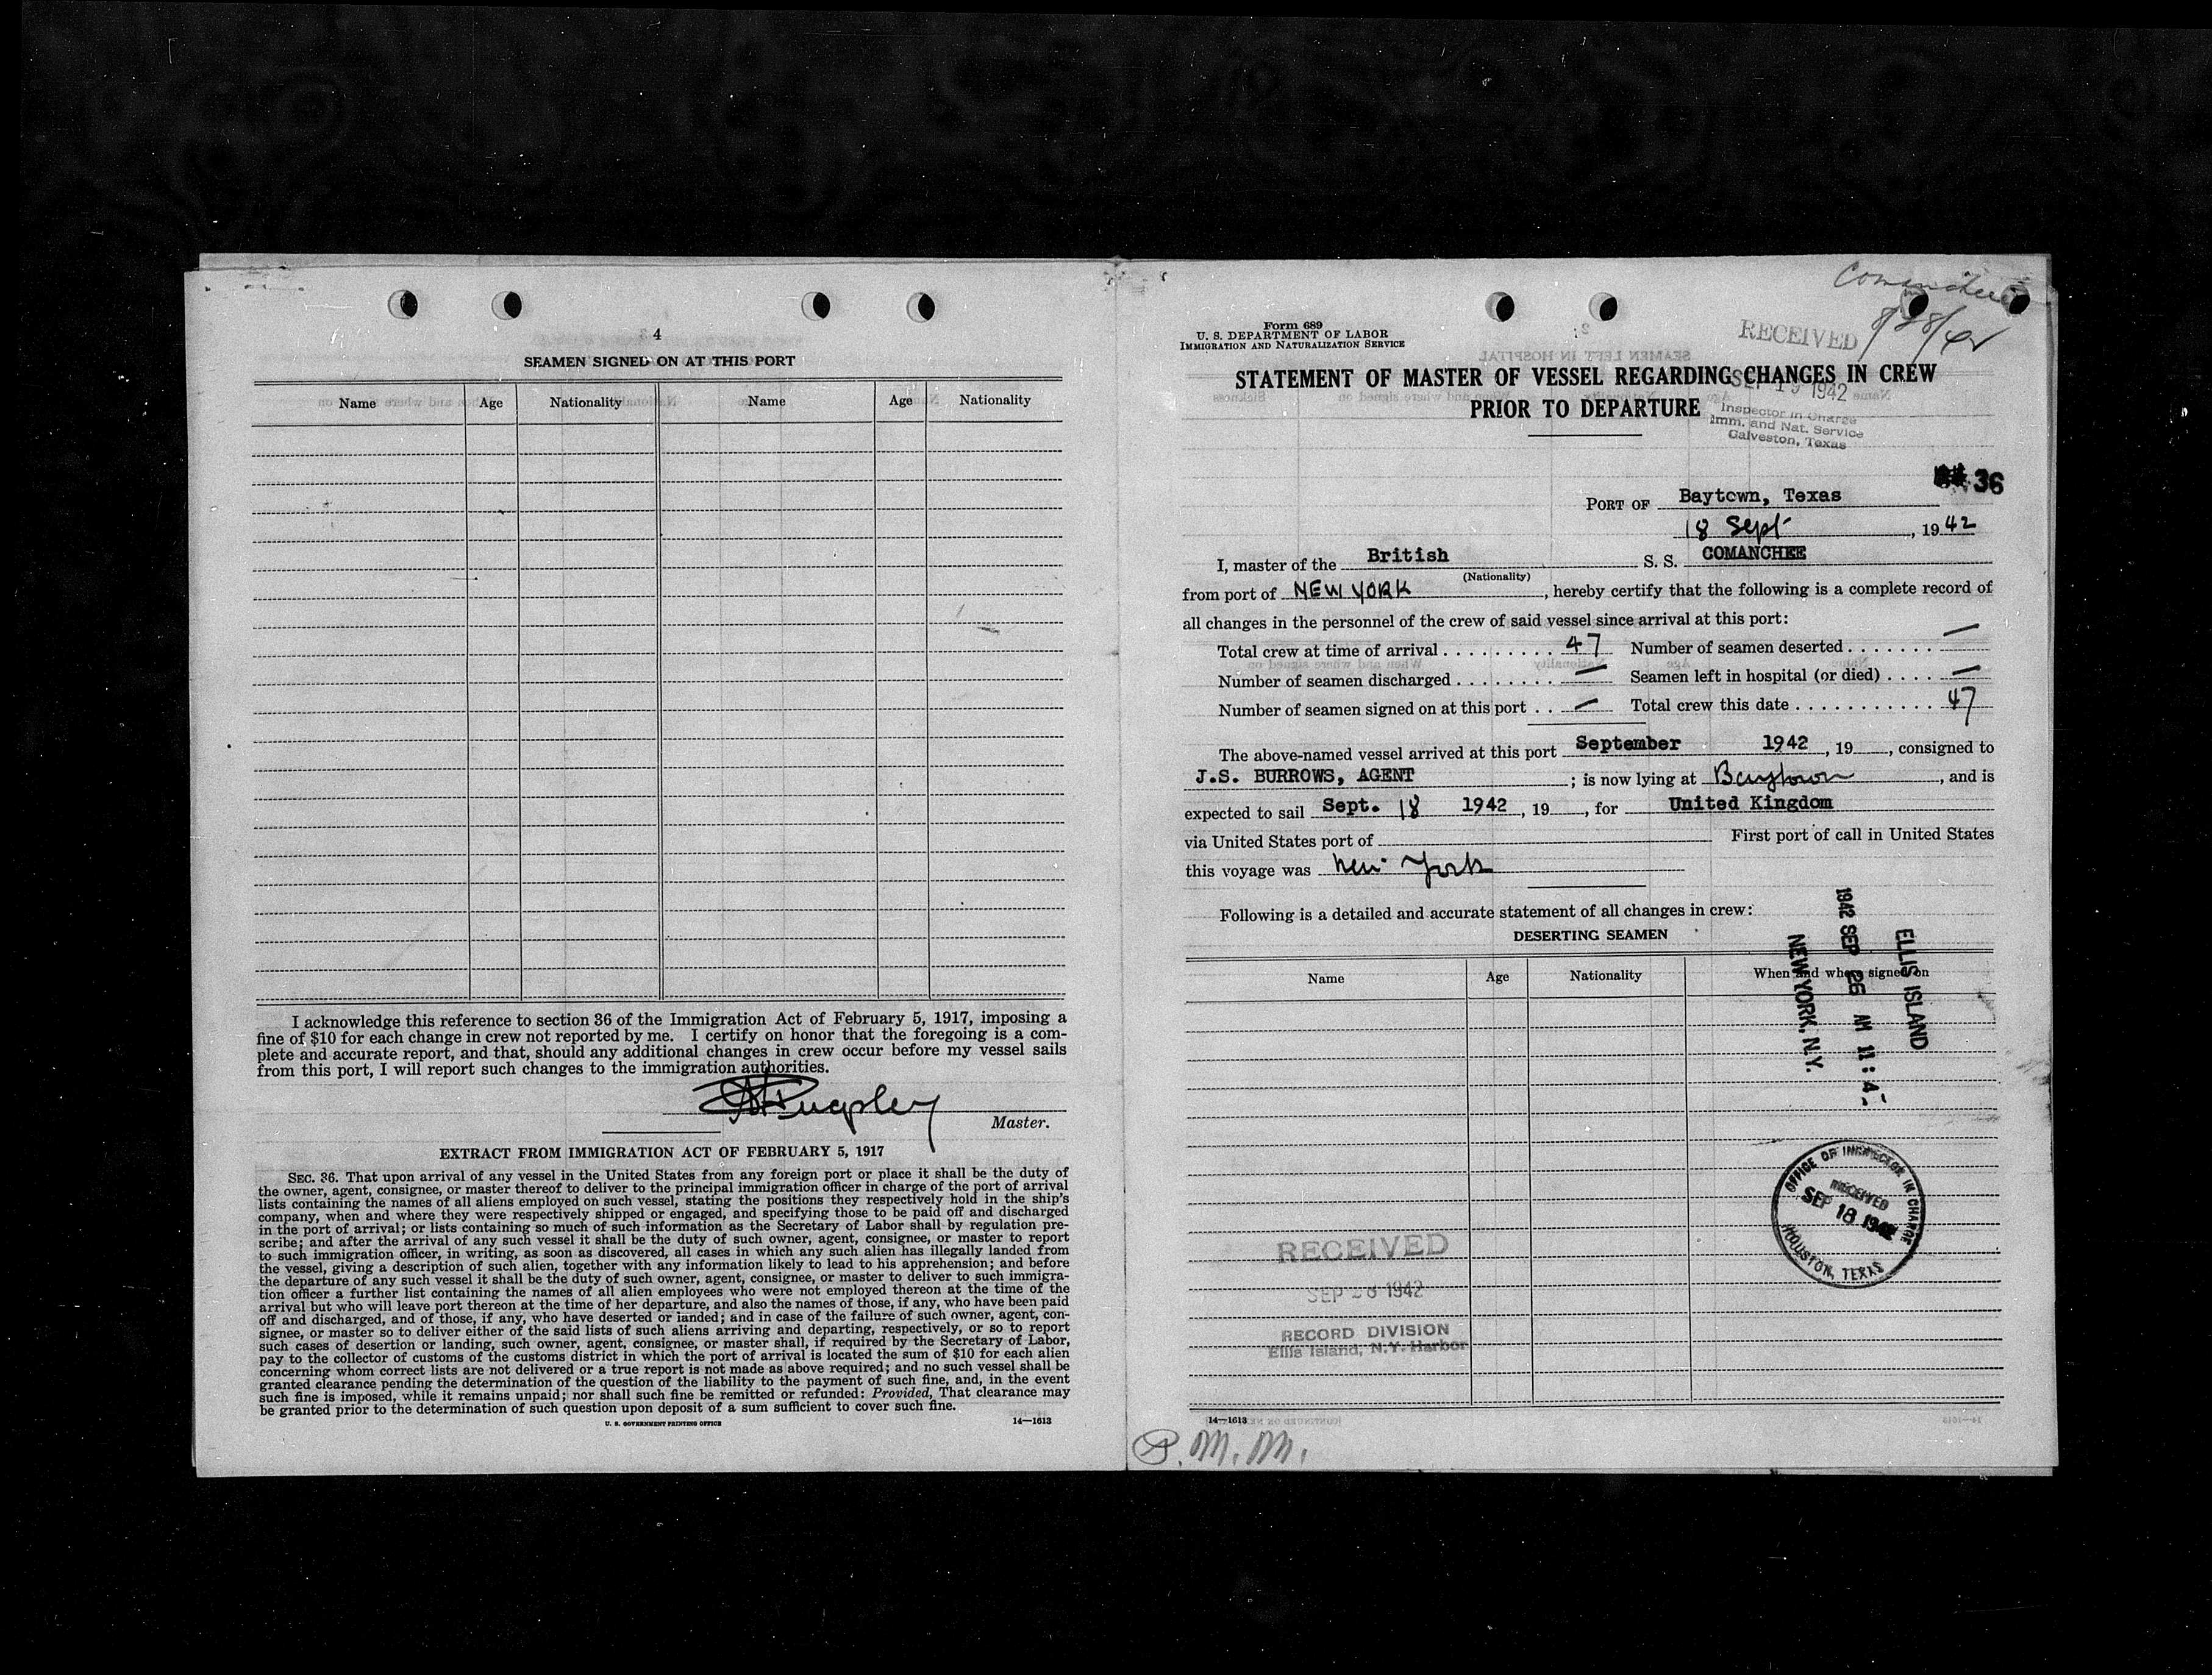 4
SEAMEN SIGNED ON AT THIS PORT
Name Age Nationality Name Age Nationality
I acknowledge this reference to section 36 of the Immigration Act of February 5, 1917, imposing a
fine of $10 for each change in crew not reported by me. I certify on honor that the foregoing is a com-
plete and accurate report, and that, should any additional changes in crew occur before my vessel sails
from this port, I will report such changes to the immigration authorities.
Pugsley
Master.
EXTRACT FROM IMMIGRATION ACT OF FEBRUARY 5, 1917
SEC. 36. That upon arrival of any vessel in the United States from any foreign port or place it shall be the duty of
the owner, agent, consignee, or master thereof to deliver to the principal immigration officer in charge of the port of arrival
lists containing the names of all aliens employed on such vessel, stating the positions they respectively hold in the ship's
company, when and where they were respectively shipped or engaged, and specifying those to be paid off and discharged
in the port of arrival; or lists containing so much of such information as the Secretary of Labor shall by regulation pre-
scribe; and after the arrival of any such vessel it shall be the duty of such owner, agent, consignee, or master to report
to such immigration officer, in writing, as soon as discovered, all cases in which any such alien has illegally landed from
the vessel, giving a description of such alien, together with any information likely to lead to his apprehension; and before
the departure of any such vessel it shall be the duty of such owner, agent, consignee, or master to deliver to such immigra-
tion officer a further list containing the names of all alien employees who were not employed thereon at the time of the
arrival but who will leave port thereon at the time of her departure, and also the names of those, if any, who have been paid
off and discharged, and of those, if any, who have deserted or landed; and in case of the failure of such owner, agent, con-
signee, or master so to deliver either of the said lists of such aliens arriving and departing, respectively, or so to report
such cases of desertion or landing, such owner, agent, consignee, or master shall, if required by the Secretary of Labor,
pay to the collector of customs of the customs district in which the port of arrival is located the sum of $10 for each alien
concerning whom correct lists are not delivered or a true report is not made as above required; and no such vessel shall be
granted clearance pending the determination of the question of the liability to the payment of such fine, and, in the event
such fine is imposed, while it remains unpaid; nor shall such fine be remitted or refunded: Provided, That clearance may
be granted prior to the determination of such question upon deposit of a sum sufficient to cover such fine.
U. S. GOVERNMENT PRINTING OFFICE 14—1613
Form 689
U. S. DEPARTMENT OF LABOR
IMMIGRATION AND NATURALIZATION SERVICE
RECEIVED
STATEMENT OF MASTER OF VESSEL REGARDING CHANGES IN CREW
PRIOR TO DEPARTURE
SEP 19 1942
Inspector in Charge
Imm. and Nat. Service
Galveston, Texas
36
PORT OF Baytown, Texas
18 Sept , 1942
I, master of the British S. S. COMANCHEE
(Nationality)
from port of NEW YORK, hereby certify that the following is a complete record of
all changes in the personnel of the crew of said vessel since arrival at this port:
Total crew at time of arrival . . . . . . . . . 47 Number of seamen deserted . . . . . . . —
Number of seamen discharged . . . . . . . . — Seamen left in hospital (or died) . . . . —
Number of seamen signed on at this port . . — Total crew this date . . . . . . . . . . . 47
The above-named vessel arrived at this port September 1942, 19 , consigned to
J.S. BURROWS, AGENT ; is now lying at Baytown, and is
expected to sail Sept. 18 1942, 19 , for United Kingdom
via United States port of First port of call in United States
this voyage was New York
Following is a detailed and accurate statement of all changes in crew:
DESERTING SEAMEN
Name Age Nationality When and where signed on
ELLIS ISLAND
1942 SEP 26 AM 11:4
NEW YORK, N.Y.
OFFICE OF INSPECTOR IN CHARGE
RECEIVED
SEP 18 1942
HOUSTON, TEXAS
RECEIVED
SEP 28 1942
RECORD DIVISION
Ellis Island, N.Y. Harbor
14—1613
P. M. M.